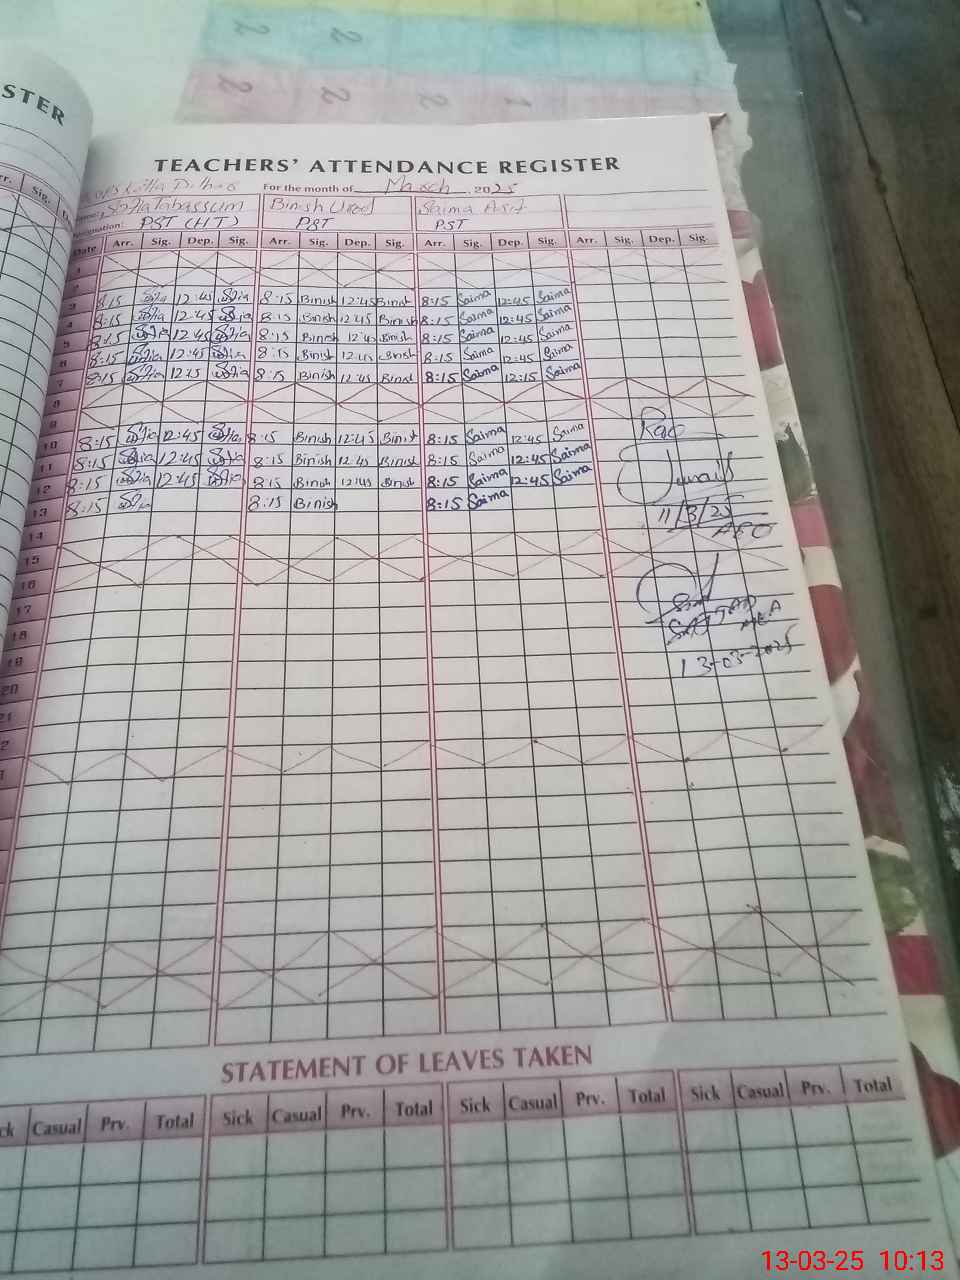 STER
TEACHERS' ATTENDANCE REGISTER
For the month of March, 2025
Sofia Tabassum Binish Saima Asif
Designation: PST (HT) PST PST
Sig.
Date Arr. Sig. Dep. Sig. Arr. Sig. Dep. Sig. Arr. Sig. Dep. Sig. Arr. Sig. Dep. Sig.
1
2
3 8:15 Sofia 12:45 Sofia 8:15 Binish 12:45 Binish 8:15 Saima 12:45 Saima
4 8:15 Sofia 12:45 Sofia 8:15 Binish 12:45 Binish 8:15 Saima 12:45 Saima
5 8:15 Sofia 12:45 Sofia 8:15 Binish 12:45 Binish 8:15 Saima 12:45 Saima
6 8:15 Sofia 12:45 Sofia 8:15 Binish 12:45 Binish 8:15 Saima 12:45 Saima
7 8:15 Sofia 12:15 Sofia 8:15 Binish 12:45 Binish 8:15 Saima 12:15 Saima
8
9
10 8:15 Sofia 12:45 Sofia 8:15 Binish 12:45 Binish 8:15 Saima 12:45 Saima
11 8:15 Sofia 12:45 Sofia 8:15 Binish 12:45 Binish 8:15 Saima 12:45 Saima
12 8:15 Sofia 12:45 Sofia 8:15 Binish 12:45 Binish 8:15 Saima 12:45 Saima
13 8:15 Sofia 8:15 Binish 8:15 Saima
11/3/25
14
AEO
15
16
17
18
SAJJAD MEA
19
13-03-2025
20
21
STATEMENT OF LEAVES TAKEN
Casual Prv. Total Sick Casual Prv. Total Sick Casual Prv. Total Sick Casual Prv. Total
13-03-25 10:13